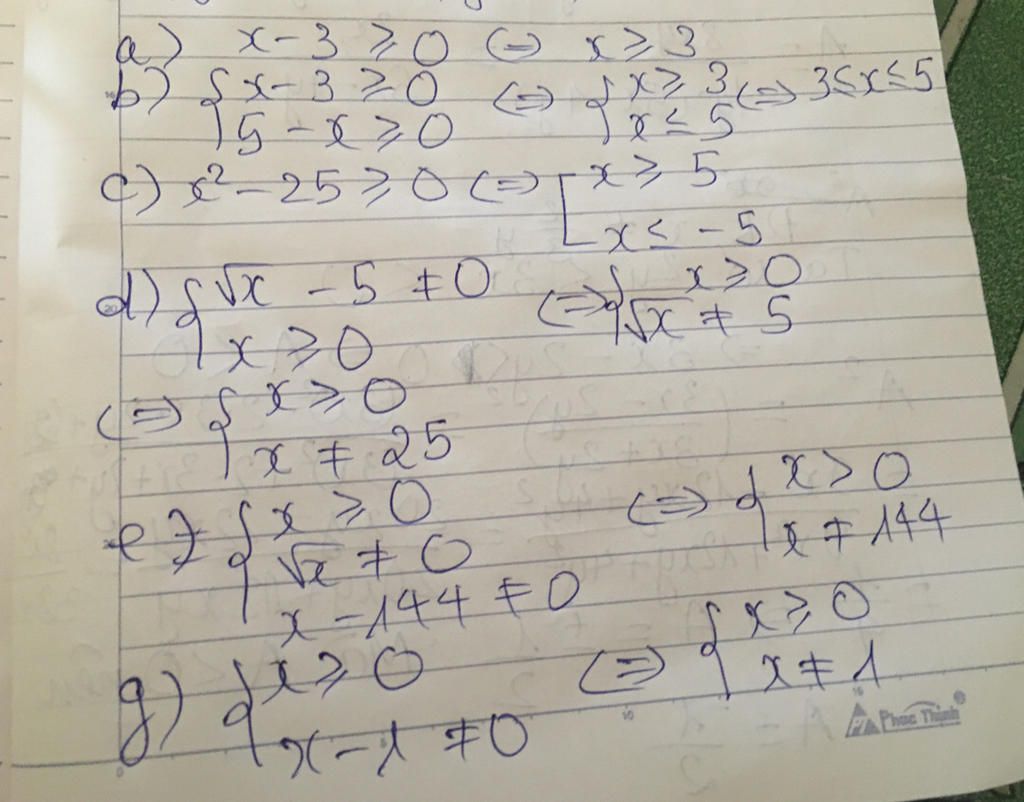 a) x - 3 ≥ 0 (=) x ≥ 3
b) { x - 3 ≥ 0 (=) { x ≥ 3 (=) 3 ≤ x ≤ 5
5 - x ≥ 0 x ≤ 5
c) x² - 25 ≥ 0 (=) [ x ≥ 5
x ≤ - 5
d) { √x - 5 ≠ 0 (=) { x ≥ 0
x ≥ 0 √x ≠ 5
(=) { x ≥ 0
x ≠ 25
e) { x ≥ 0 (=) { x > 0
√x ≠ 0 x ≠ 144
x - 144 ≠ 0
g) { x ≥ 0 (=) { x ≥ 0
x - 1 ≠ 0 x ≠ 1
Phuc Thịnh